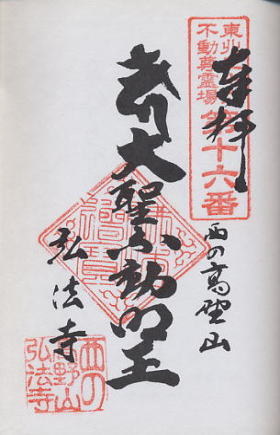 奉拝
不動尊霊場
第十六番
西の高野山
大聖不動明王
弘法寺
西の
高野山
弘法寺